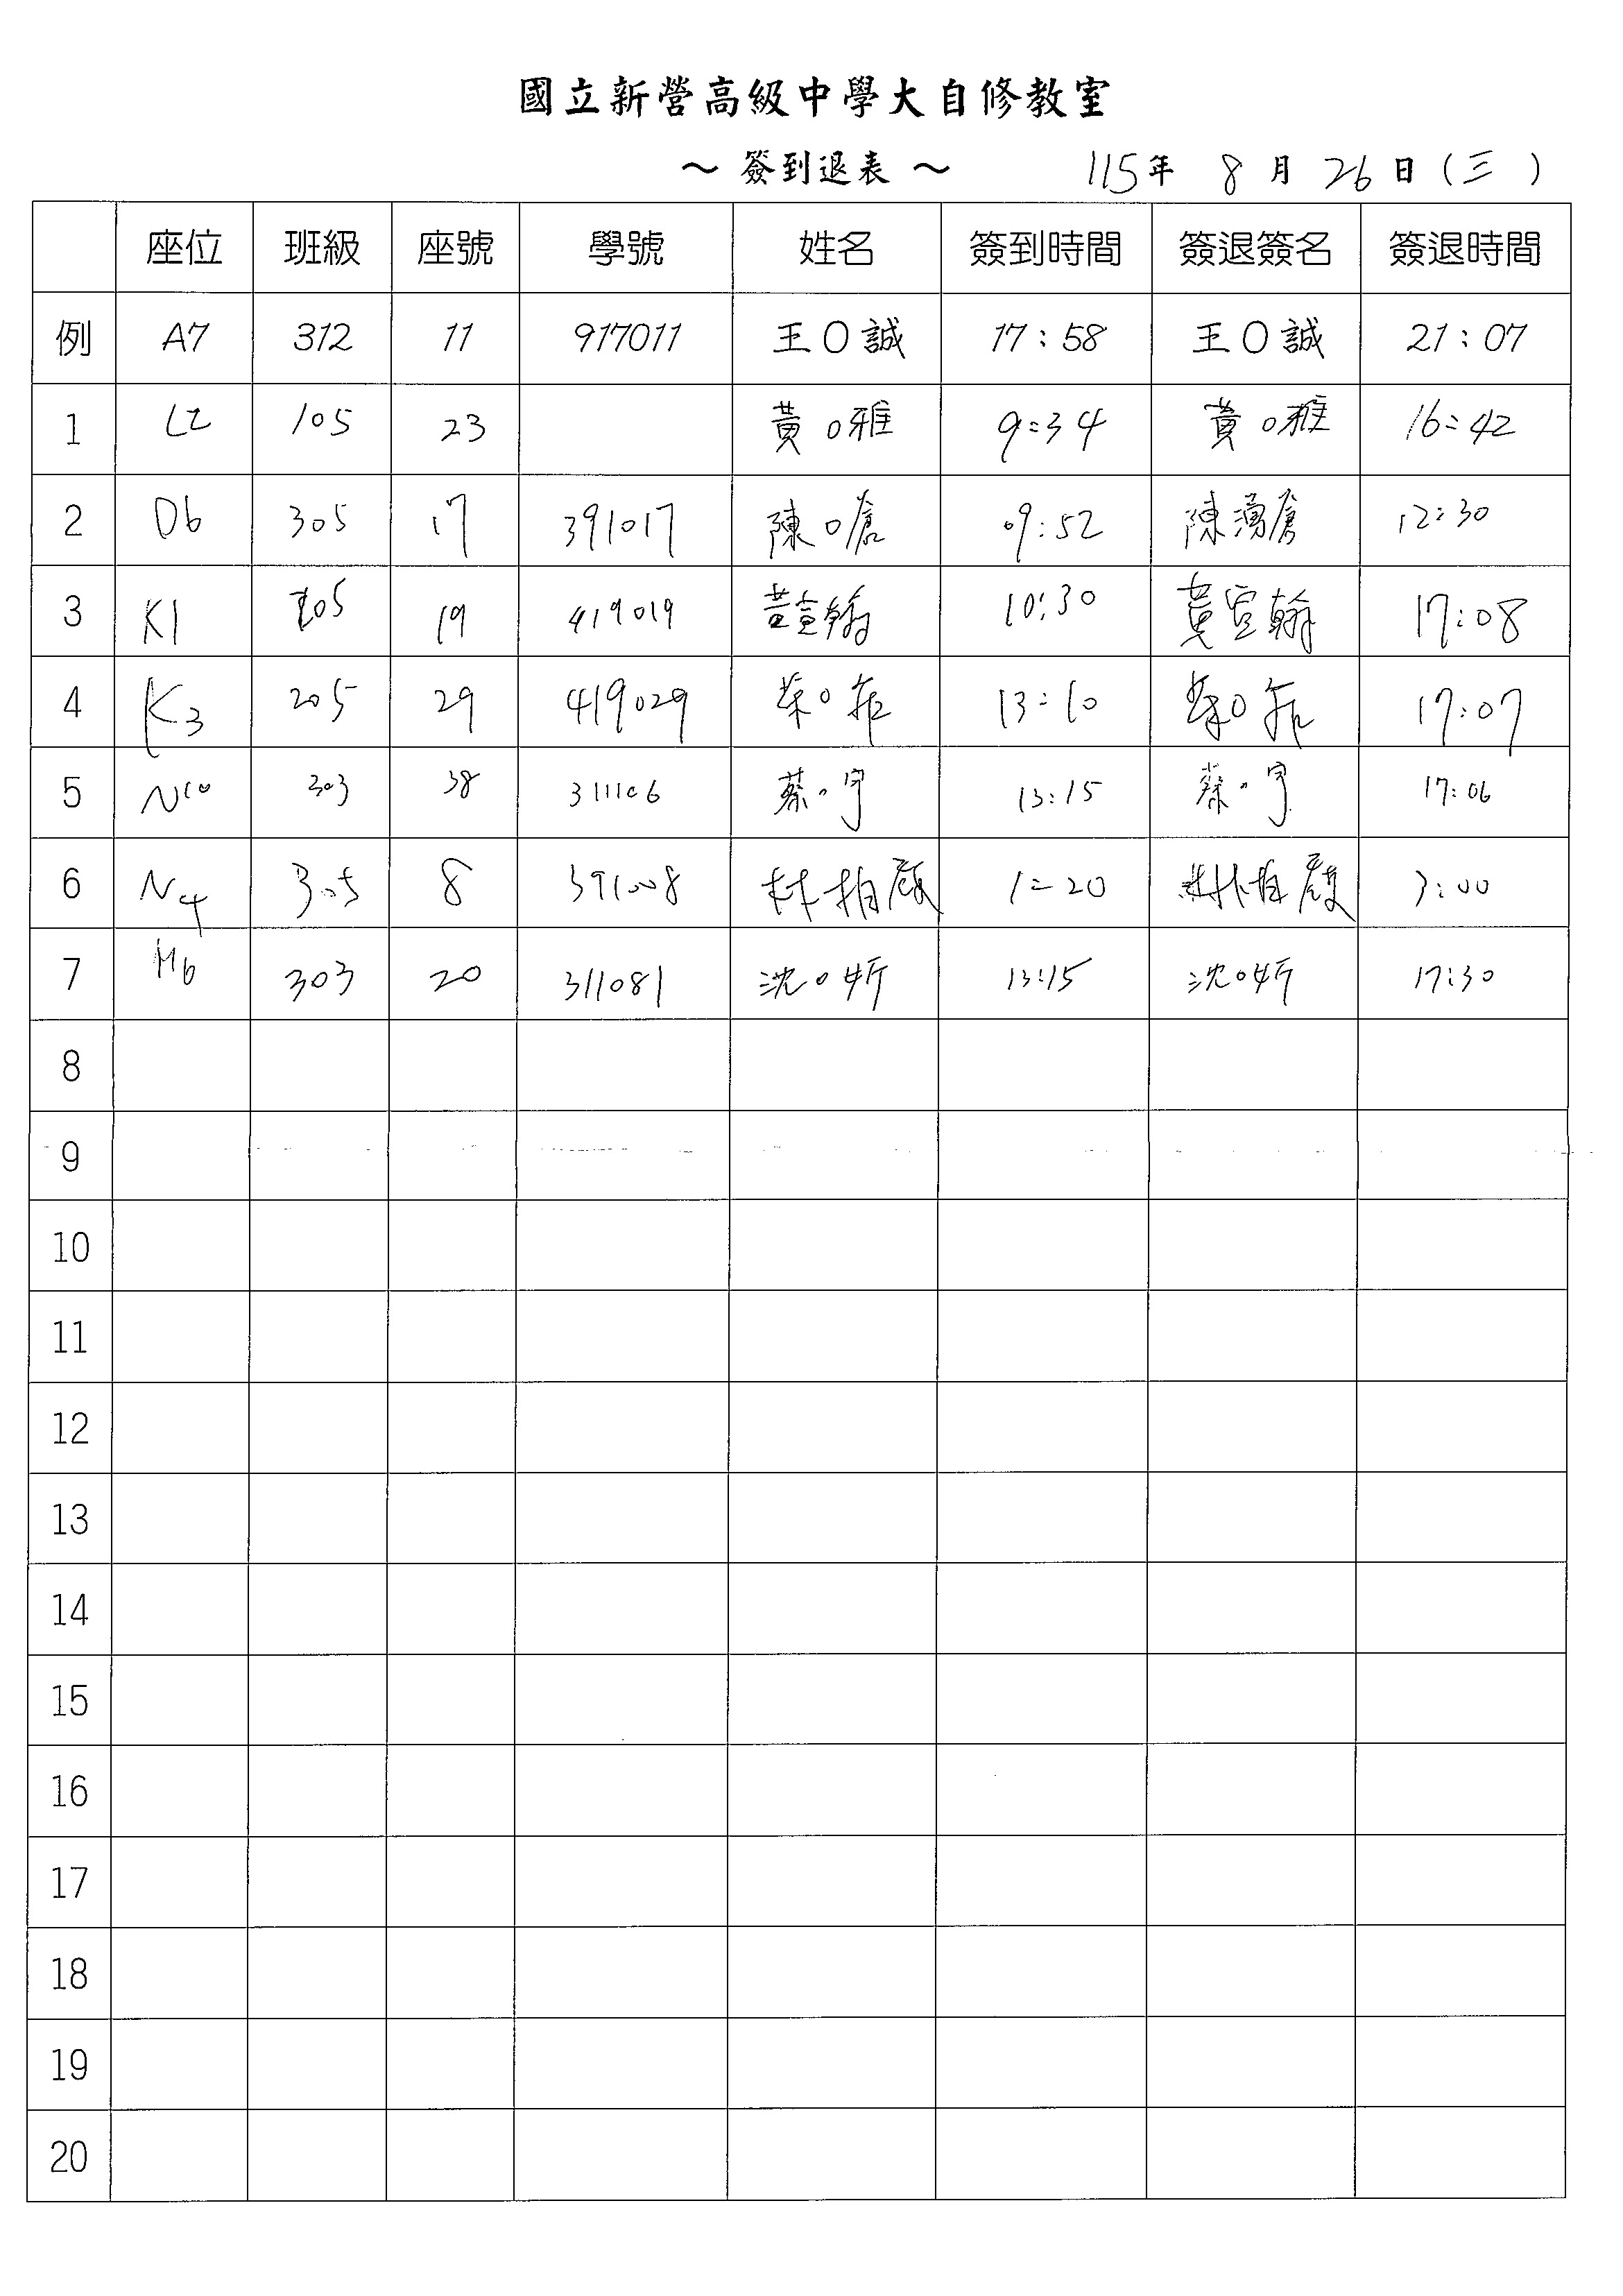 國立新營高級中學大自修教室
～ 簽到退表 ～ 115年 8月 26日(三)
座位 班級 座號 學號 姓名 簽到時間 簽退簽名 簽退時間
例 A7 312 11 917011 王O誠 17:58 王O誠 21:07
1 L2 105 23 黃O雅 9:34 黃O雅 16:42
2 D6 305 17 391017 陳O滄 09:52 陳湧滄 12:30
3 K1 205 19 419019 黃宣翰 10:30 黃宣翰 17:08
4 K3 205 29 419029 蔡O 13:10 蔡O 17:07
5 N10 303 38 311106 蔡O宇 13:15 蔡O宇 17:06
6 N4 305 8 391008 林柏 1:20 林柏 3:00
7 M6 303 20 311081 沈O妡 13:15 沈O妡 17:30
8
9
10
11
12
13
14
15
16
17
18
19
20